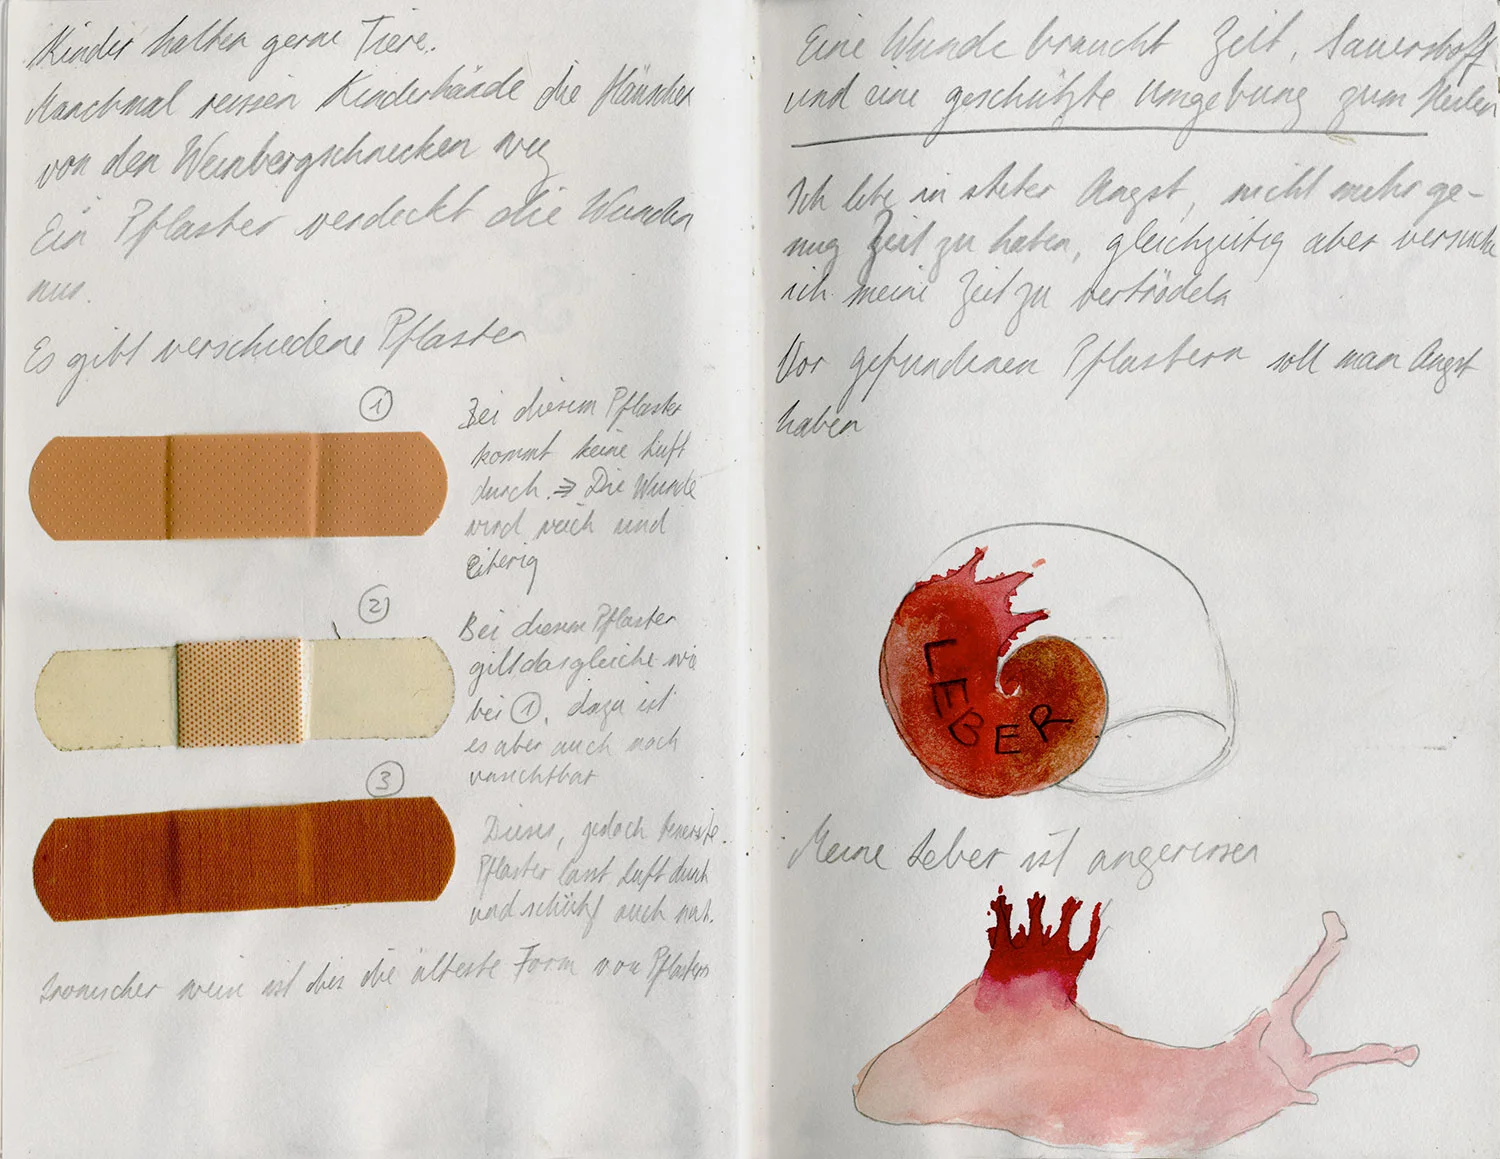 Kinder halten gerne Tiere.
Manchmal reissen Kinderhände die Häuschen
von den Weinbergschnecken weg
Ein Pflaster verdeckt die Wunden
nur.
Es gibt verschiedene Pflaster
1
Bei diesem Pflaster
kommt keine Luft
durch. => Die Wunde
wird weich und
eiterig
2
Bei diesem Pflaster
gilt das gleiche wie
bei 1, dazu ist
es aber auch noch
unsichtbar
3
Dieses, jedoch
Pflaster lässt Luft durch
und schützt auch nat.
Ironischer weise ist dies die älteste Form von Pflastern
Eine Wunde braucht Zeit, Sauerstoff
und eine geschützte Umgebung zum Heilen
Ich lebe in steter Angst, nicht mehr ge-
nug Zeit zu haben, gleichzeitig aber versuche
ich meine Zeit zu vertrödeln
Vor gefundenen Pflastern soll man Angst
haben
LEBER
Meine Leber ist angerissen